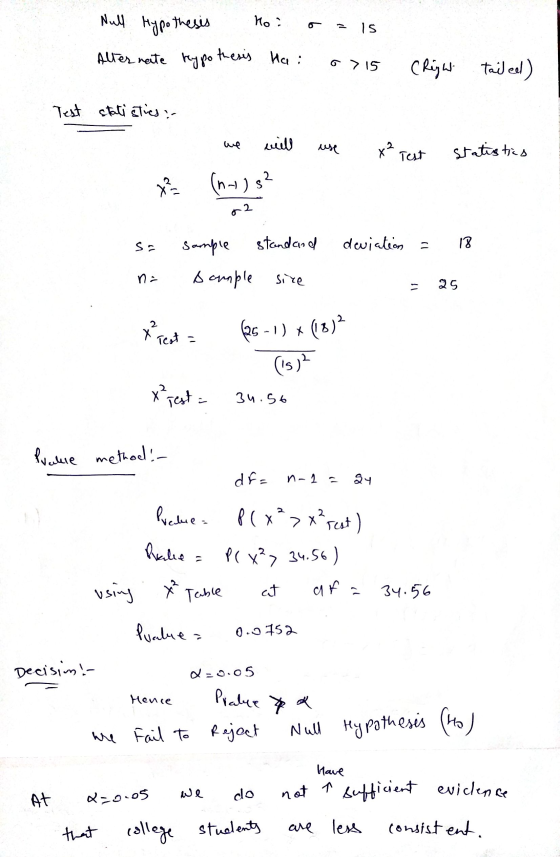 Null Hypothesis H₀ : σ = 15
Alternate Hypothesis Ha : σ > 15 (Right tailed)
Test statistics :-
we will use x² Test statistics
x² = (n-1) s² / σ²
s = sample standard deviation = 18
n = sample size = 25
x² Test = (25 - 1) × (18)² / (15)²
x² Test = 34.56
Pvalue method :-
df = n - 1 = 24
Pvalue = P( x² > x² Test )
Pvalue = P( x² > 34.56 )
using x² Table at df = 34.56
Pvalue = 0.0752
Decision :-
α = 0.05
Hence Pvalue > α
we Fail to Reject Null Hypothesis (H₀)
At α = 0.05 we do not ↑ Have sufficient evidence
that college students are less consistent.